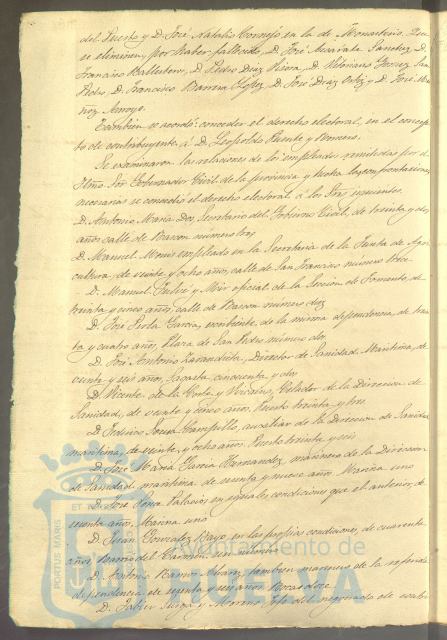 del Puerto y D. José Natalio Cornejo en la de Monasterio. Que
se eliminen, por haber fallecido, D. José Alvarez Sanchez, D.
Francisco Ballestero, D. Pedro Diaz, D. Gomez San
Pedro, D. Francisco Barrera Lopez, D. José Diaz Ortiz y D. José Mu
ñoz Arroyo.
Tambien se acordó conceder el derecho electoral, en el concep
to de contribuyente á D. Leopoldo Puente y Romero.
Se examinaron las relaciones de los empleados remitidas por el
Iltmo Sor Gobernador Civil de la provincia y hecha las comprobaciones
necesarias se concedió el derecho electoral á los Sres siguientes.
D. Antonio Maria Dos Secretario del Gobierno Civil, de treinta y dos
años calle de Rascon número tres
D. Manuel empleado en la Secretaria de la Junta de Agri
cultura, de veinte y ocho años, calle de San Francisco número trece
D. Manuel y Mir oficial de la Seccion de Fomento, de
treinta y cinco años, calle de Rascon número diez
D. José Garcia, escribiente de la misma dependencia, de trein
ta y cuatro años, Plaza de San Pedro número dos
D. José Antonio Director de Sanidad Maritima, de
y seis años, Sagasta cincuenta y dos
D. Vicente de la Corte y Celador de la Direccion de
Sanidad, de veinte y cinco años, Puerto treinta y tres
D. Federico Campillo, auxiliar de la Direccion de Sanidad
maritima, de veinte y ocho años Puerto treinta y seis
D. José Maria Garcia Hernandez, marinero de la Direccion
de Sanidad maritima de y nueve años, Marina uno
D. José Palacios en iguales condiciones que el anterior, de
años, Marina uno
D. Juan Gonzalez Rayo, en las propias condiciones, de cuarenta
años, barrio del Carmen sin número
D. Antonio Ramos Alvarez tambien marinero de la referida
dependencia de y seis años
D. Javier y Moreno, Jefe del negociado de
Ayuntamiento de
HUELVA
PORTUS MARIS ET TERRAE